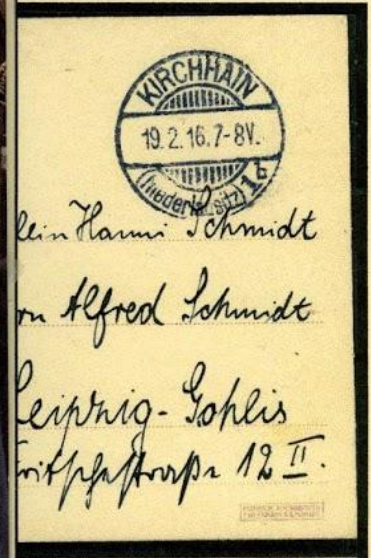 KIRCHHAIN
19.2.16.7-8V.
(Niederlausitz) 1b
lein Hanni Schmidt
rn Alfred Schmidt
Leipzig-Gohlis
ritschestraße 12 II.